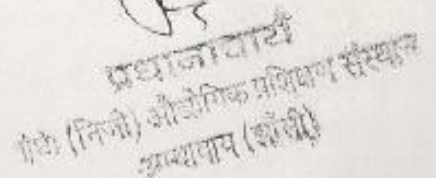 प्रधानाचार्य
(निजी) औद्योगिक प्रशिक्षण संस्थान
(झाँसी)